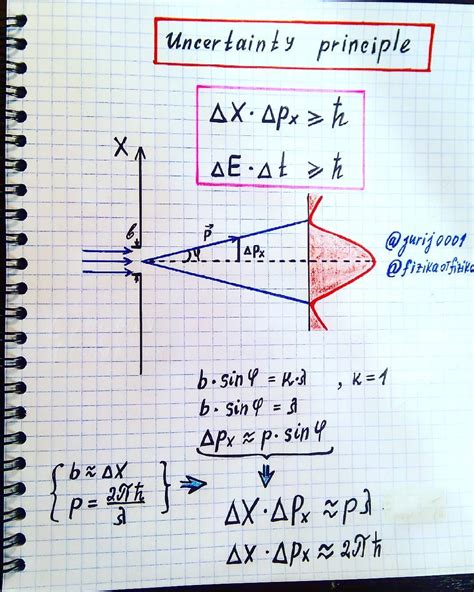 Uncertainty principle
Δx · Δpₓ ⩾ ħ
ΔE · Δt ⩾ ħ
X
b
p⃗
φ
Δpₓ
@jurij0001
@fizikaotfizika
b · sinφ = κ·λ , κ=1
b · sinφ = λ
Δpₓ ≈ p · sinφ
{ b ≈ Δx
p = 2πħ/λ }
Δx · Δpₓ ≈ pλ
Δx · Δpₓ ≈ 2πħ